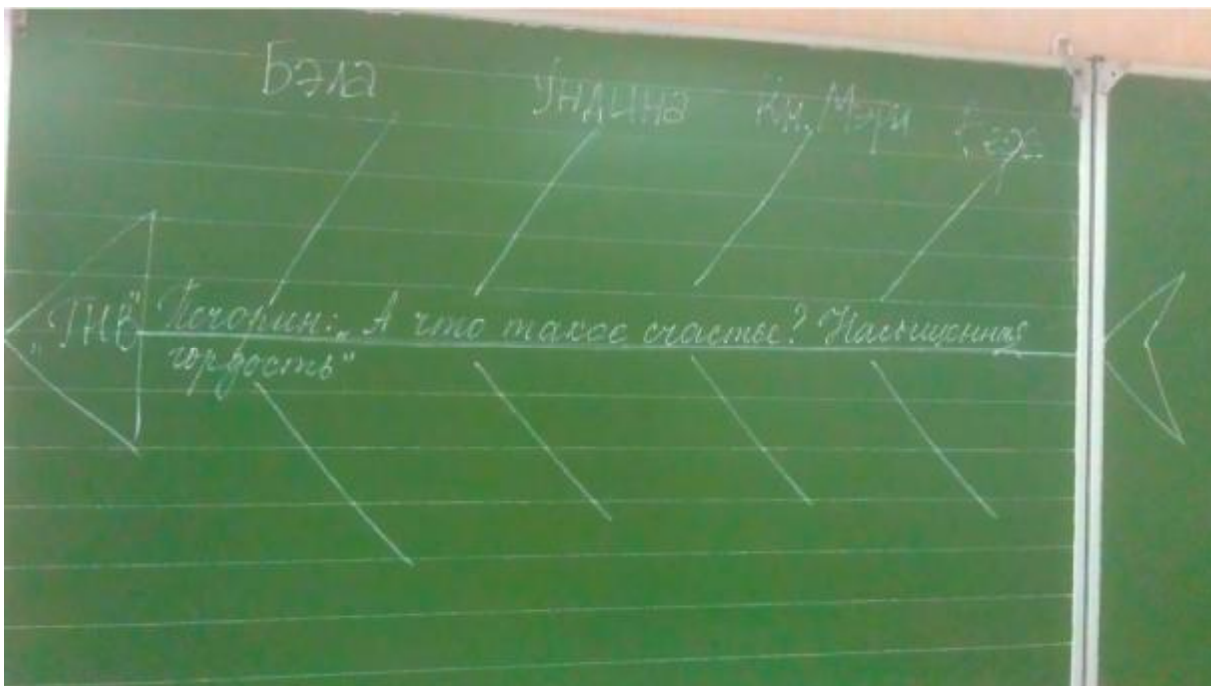 Бэла
Ундина
Кн. Мэри
„ГНВ"
Печорин: „А что такое счастье? Насыщенная
гордость"